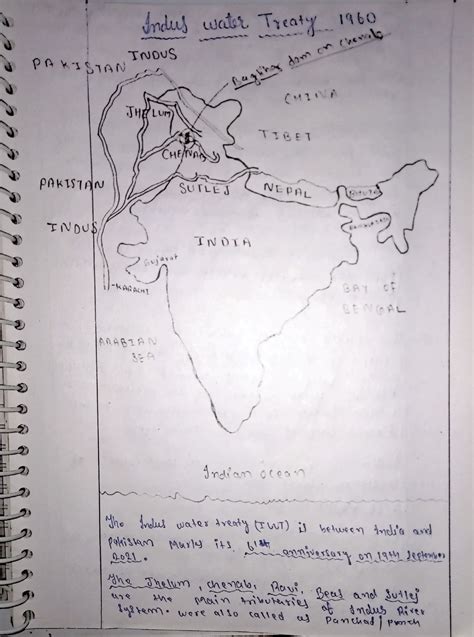 Indus water Treaty 1960
INDUS
PAKISTAN
Baglihar dam on Chenab
CHINA
JHELUM
TIBET
CHENAB
PAKISTAN
SUTLEJ
NEPAL
BHUTAN
INDUS
BANGLADESH
INDIA
Gujarat
KARACHI
BAY OF
BENGAL
ARABIAN
SEA
Indian ocean
The Indus water treaty (IWT) is between India and
Pakistan Marks its 61st anniversary on 19th September
2021.
The Jhelum, chenab, Ravi, Beas and Sutlej
are the main tributaries of Indus River
System. were also called as Panchad/Panch